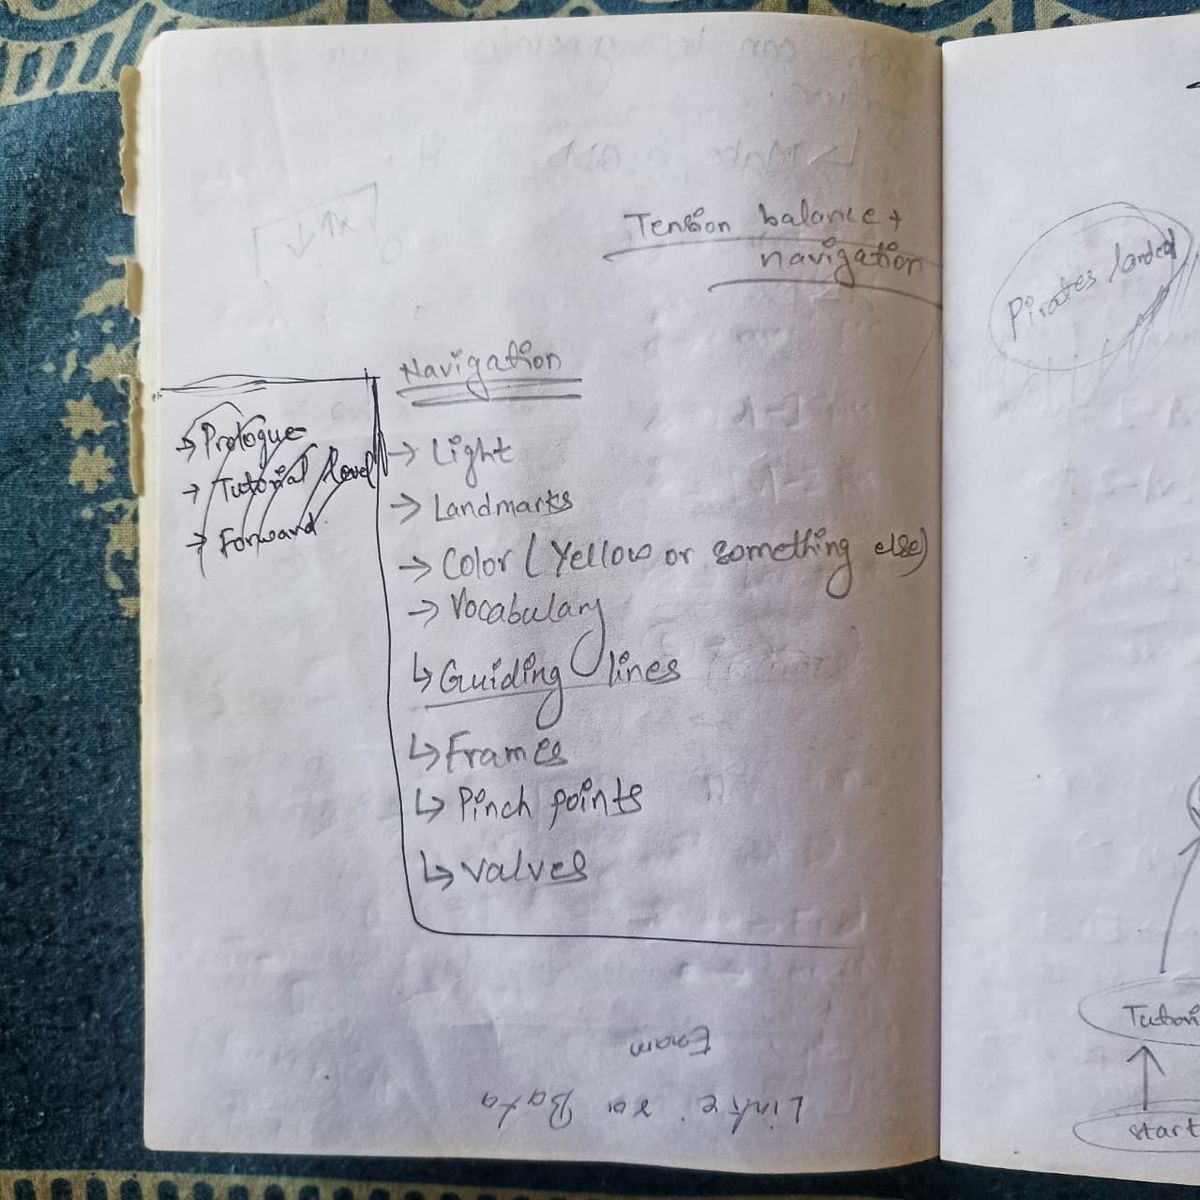 Tension balance +
navigation
Navigation
→ Prologue
→ Tutorial level
→ Forward
→ Light
→ Landmarks
→ Color ( Yellow or something else)
→ Vocabulary
↳ Guiding lines
↳ Frames
↳ Pinch points
↳ valves
Pirates landed
Tutori
start